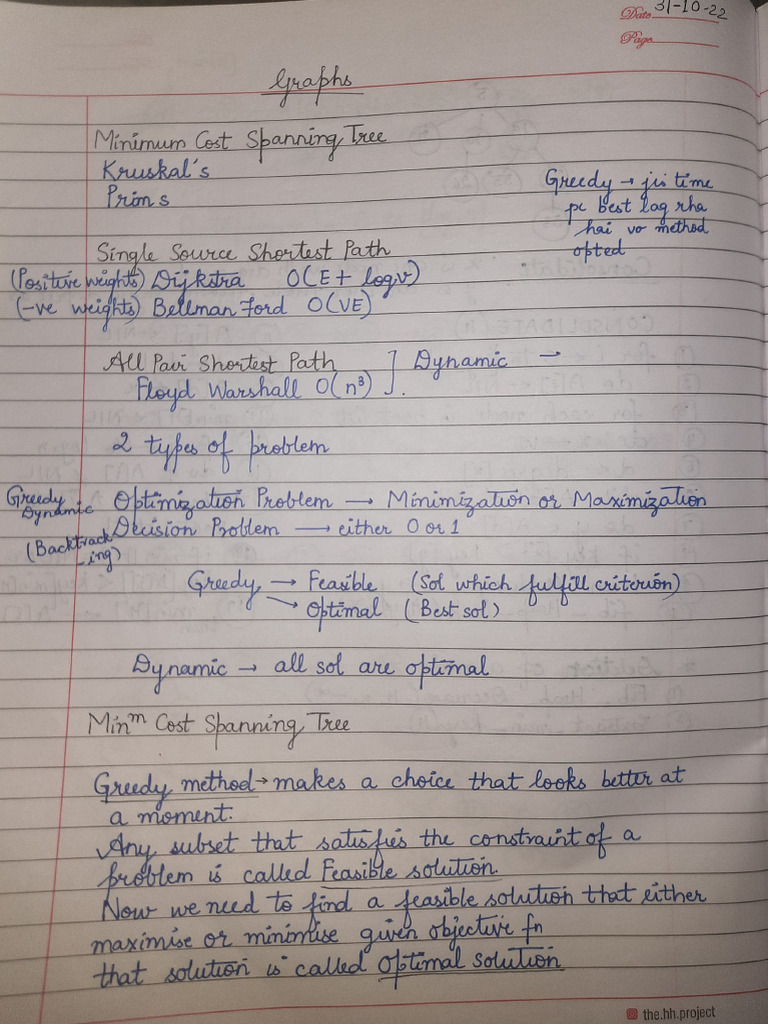 Date 31-10-22
Page
Graphs
Minimum Cost Spanning Tree
Kruskal's
Prims
Greedy → jis time
pe best lag rha
hai vo method
opted
Single Source Shortest Path
(Positive weights) Dijkstra O(E + logv)
(-ve weights) Bellman Ford O(VE)
All Pair Shortest Path ] Dynamic →
Floyd Warshall O(n³)
2 types of problem
Greedy
Dynamic
Optimization Problem → Minimization or Maximization
(Backtrack
-ing)
Decision Problem → either 0 or 1
Greedy → Feasible (Sol which fulfill criterion)
→ Optimal (Best sol)
Dynamic → all sol are optimal
Minᵐ Cost Spanning Tree
Greedy method → makes a choice that looks better at
a moment.
Any subset that satisfies the constraint of a
problem is called Feasible solution.
Now we need to find a feasible solution that either
maximise or minimise given objective fn
that solution is called Optimal solution
the.hh.project